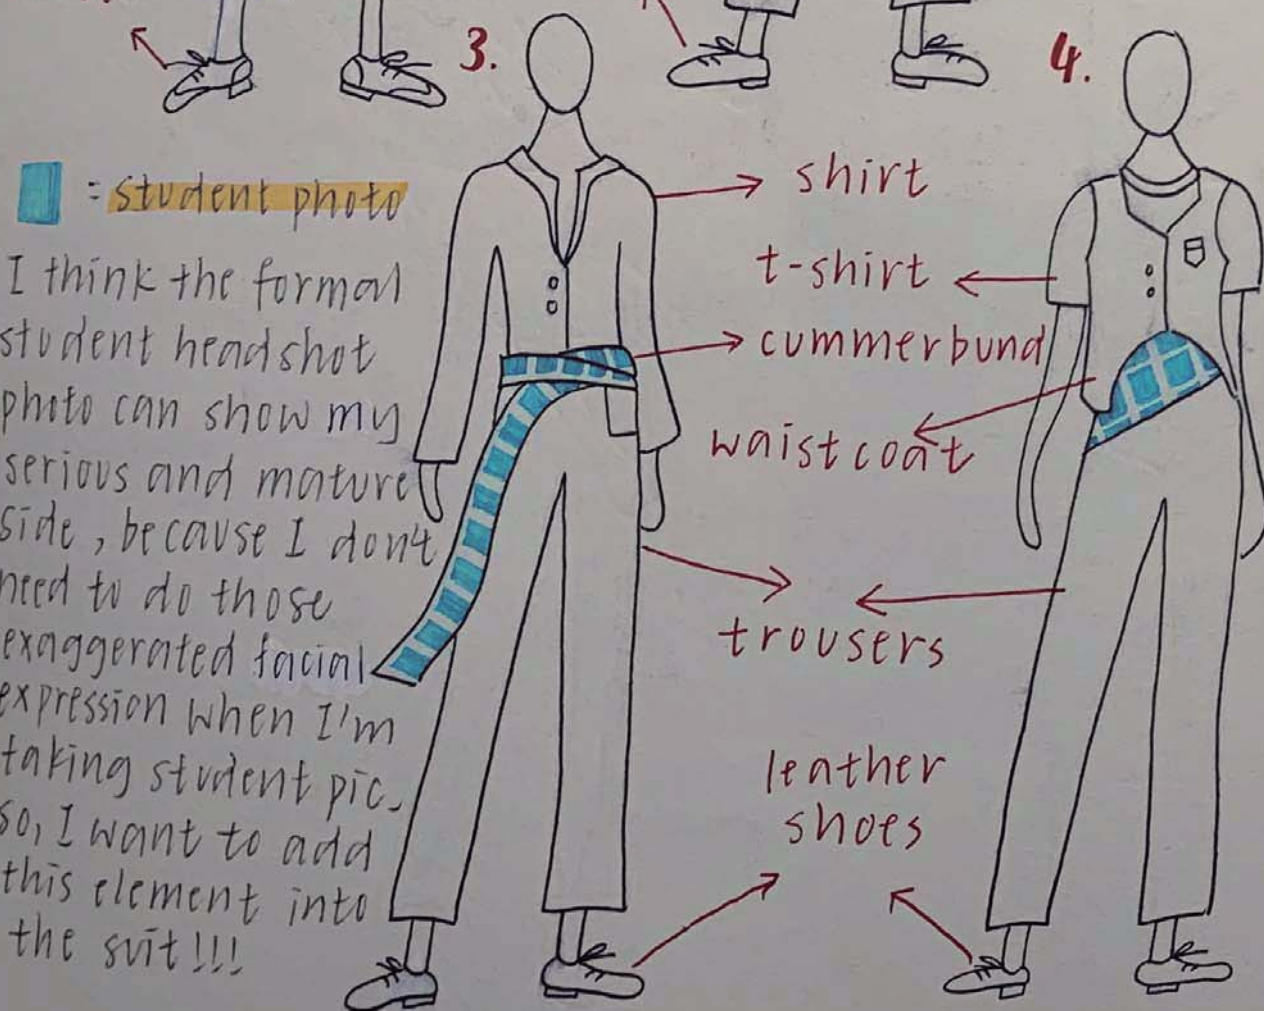 3.
4.
= student photo
I think the formal
student headshot
photo can show my
serious and mature
side, because I don't
need to do those
exaggerated facial
expression when I'm
taking student pic.
so, I want to add
this element into
the suit!!!
shirt
t-shirt
cummerbund
waistcoat
trousers
leather
shoes